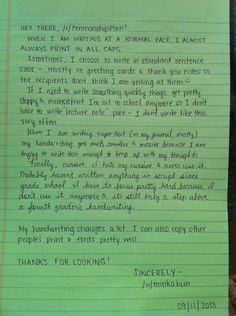 HEY THERE, /r/PenmanshipPorn!
WHEN I AM WRITING AT A NORMAL PACE, I ALMOST
ALWAYS PRINT IN ALL CAPS.
Sometimes, I choose to write in standard sentence
case - mostly on greeting cards & thank you notes so
the recipients don't think I am yelling at them
If I need to write something quickly things get pretty
sloppy & inconsistent. I'm not in school anymore so I don't
have to write "lecture note" pace - I don't write like this
very often.
When I am writing super fast (in my journal, mostly)
my handwriting gets much smaller & messier because I am
trying to write fast enough to keep up with my thoughts.
Finally, cursive. I hate my cursive & never use it.
Probably haven't written anything in script since
grade school. I have to focus pretty hard because I
don't use it anymore & it's still only a step above
a fourth grader's handwriting.
My handwriting changes a lot. I can also copy other
people's print & fonts pretty well.
THANKS FOR LOOKING!
SINCERELY -
/u/minkabun
09/11/2013